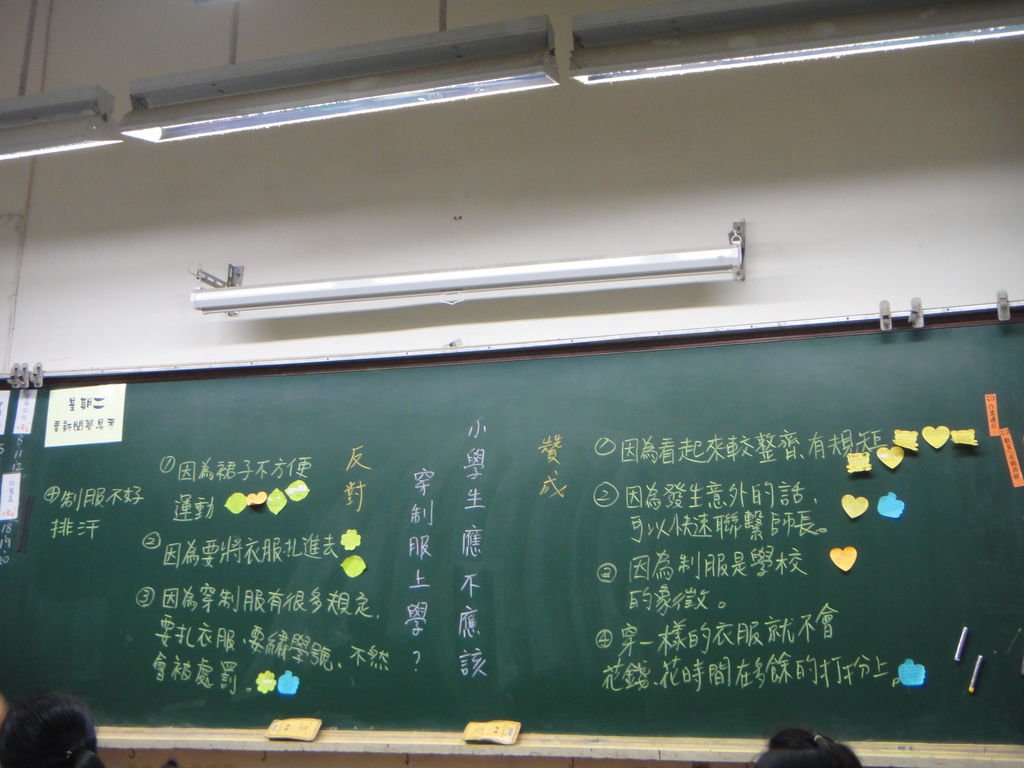 小學生應不應該
穿制服上學？
贊成
①因為看起來較整齊、有規矩
②因為發生意外的話、
可以快速聯繫師長。
③因為制服是學校
的象徵。
④穿一樣的衣服就不會
花錢、花時間在多餘的打扮上。
反對
①因為裙子不方便
運動
②因為要將衣服扎進去
③因為穿制服有很多規定、
要扎衣服、要繡學號、不然
會被處罰。
④制服不好
排汗
星期二